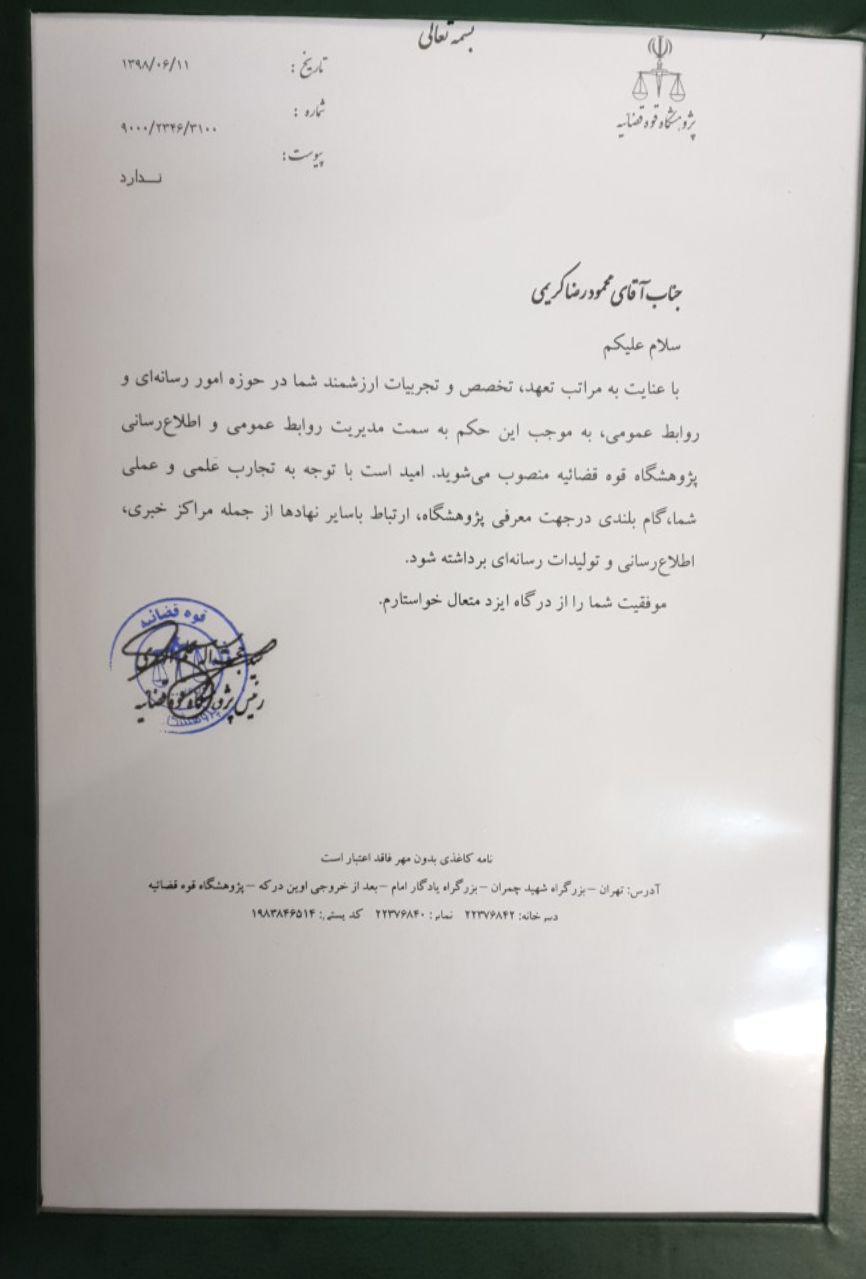 بسمه تعالی
پژوهشگاه قوه قضائیه
تاریخ : ۱۳۹۸/۰۶/۱۱
شماره : ۹۰۰۰/۲۳۴۶/۳۱۰۰
پیوست : نـــدارد
جناب آقای محمودرضا کریمی
سلام علیکم
با عنایت به مراتب تعهد، تخصص و تجربیات ارزشمند شما در حوزه امور رسانه‌ای و
روابط عمومی، به موجب این حکم به سمت مدیریت روابط عمومی و اطلاع‌رسانی
پژوهشگاه قوه قضائیه منصوب می‌شوید. امید است با توجه به تجارب عَلمی و عملی
شما،گام بلندی درجهت معرفی پژوهشگاه، ارتباط باسایر نهادها از جمله مراکز خبری،
اطلاع‌رسانی و تولیدات رسانه‌ای برداشته شود.
موفقیت شما را از درگاه ایزد متعال خواستارم.
قوه قضائیه
رئیس پژوهشگاه قوه قضائیه
نامه کاغذی بدون مهر فاقد اعتبار است
آدرس: تهران – بزرگراه شهید چمران – بزرگراه یادگار امام – بعد از خروجی اوین درکه – پژوهشگاه قوه قضائیه
دبیرخانه: ۲۲۳۷۶۸۴۲ نمابر: ۲۲۳۷۶۸۴۰ کد پستی: ۱۹۸۳۸۴۶۵۱۴